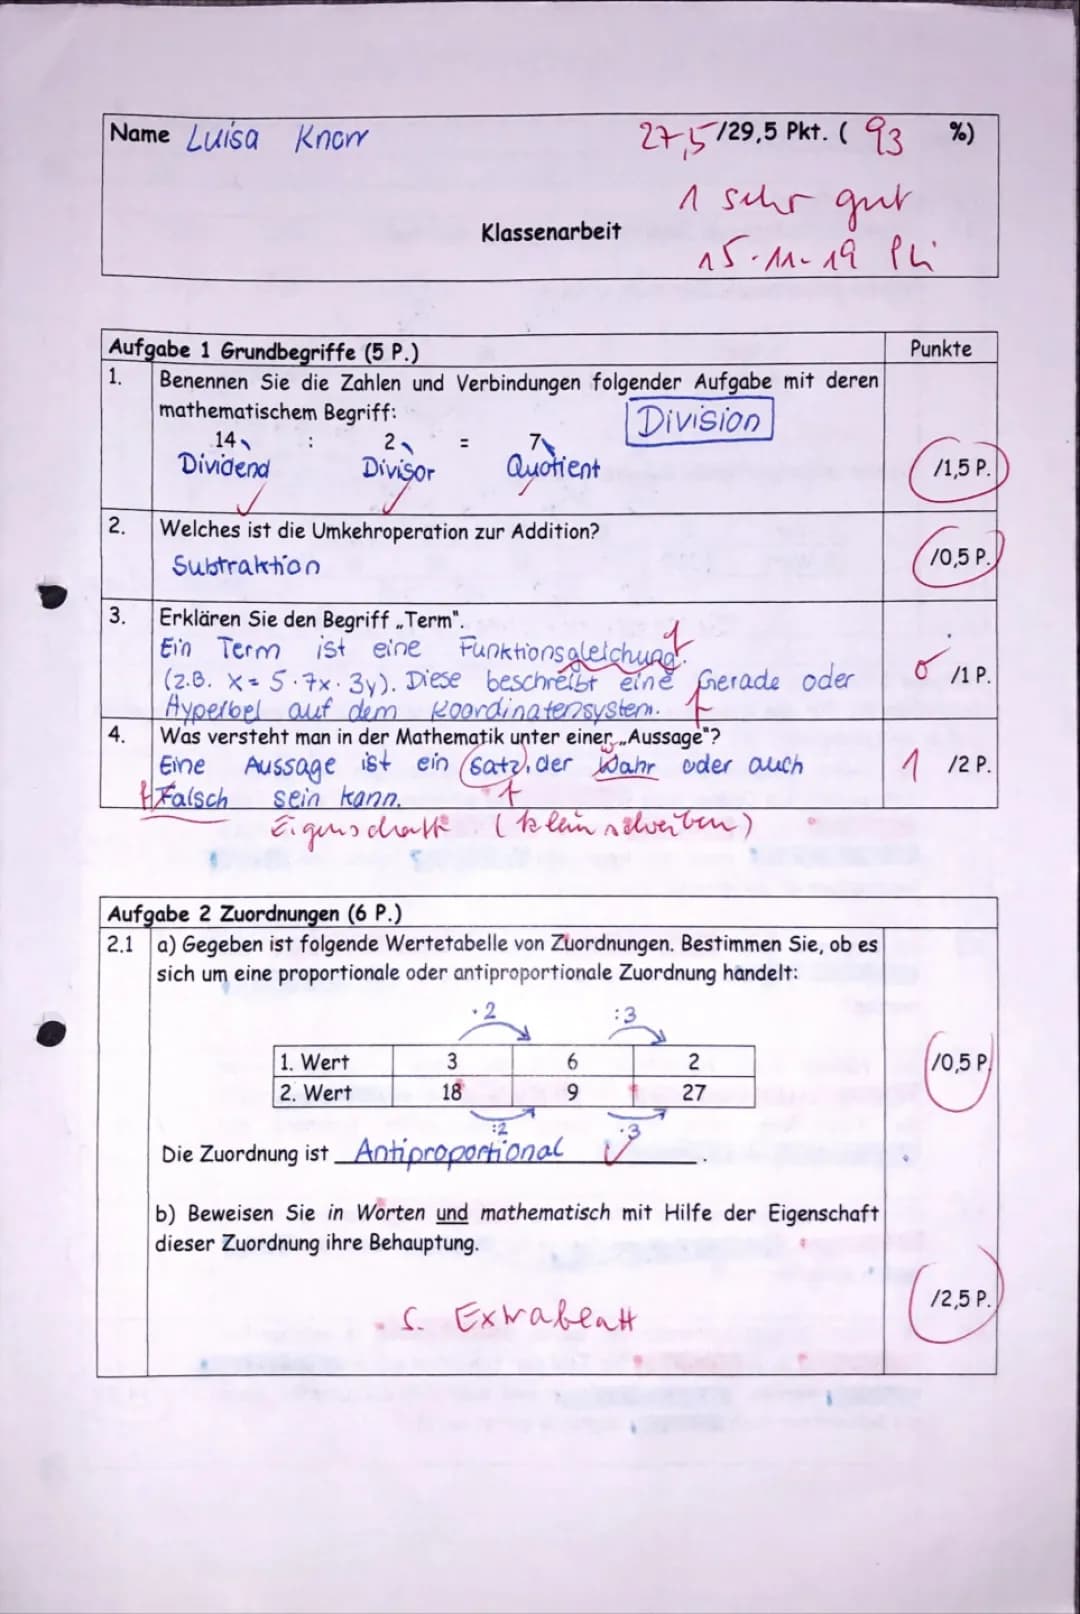 Name Luisa Knorr 27,5/29,5 Pkt. ( 93 %)
1 sehr gut
Klassenarbeit
15.11.19
Aufgabe 1 Grundbegriffe (5 P.) Punkte
1. Benennen Sie die Zahlen und Verbindungen folgender Aufgabe mit deren
mathematischem Begriff: Division
14 : 2 = 7
Dividend Divisor Quotient /1,5 P.
2. Welches ist die Umkehroperation zur Addition?
Subtraktion /0,5 P.
3. Erklären Sie den Begriff „Term".
Ein Term ist eine Funktionsgleichung. f
(z.B. x = 5·7x·3y). Diese beschreibt eine Gerade oder 0 /1 P.
Hyperbel auf dem Koordinatensystem. f
4. Was versteht man in der Mathematik unter einer „Aussage"?
Eine Aussage ist ein Satz, der Wahr oder auch 1 /2 P.
Falsch sein kann. f
Eigenschaft (klein schreiben)
Aufgabe 2 Zuordnungen (6 P.)
2.1 a) Gegeben ist folgende Wertetabelle von Zuordnungen. Bestimmen Sie, ob es
sich um eine proportionale oder antiproportionale Zuordnung handelt:
·2 :3
1. Wert 3 6 2 /0,5 P.
2. Wert 18 9 27
:2 ·3
Die Zuordnung ist Antiproportional.
b) Beweisen Sie in Worten und mathematisch mit Hilfe der Eigenschaft
dieser Zuordnung ihre Behauptung.
/2,5 P.
s. Extrablatt